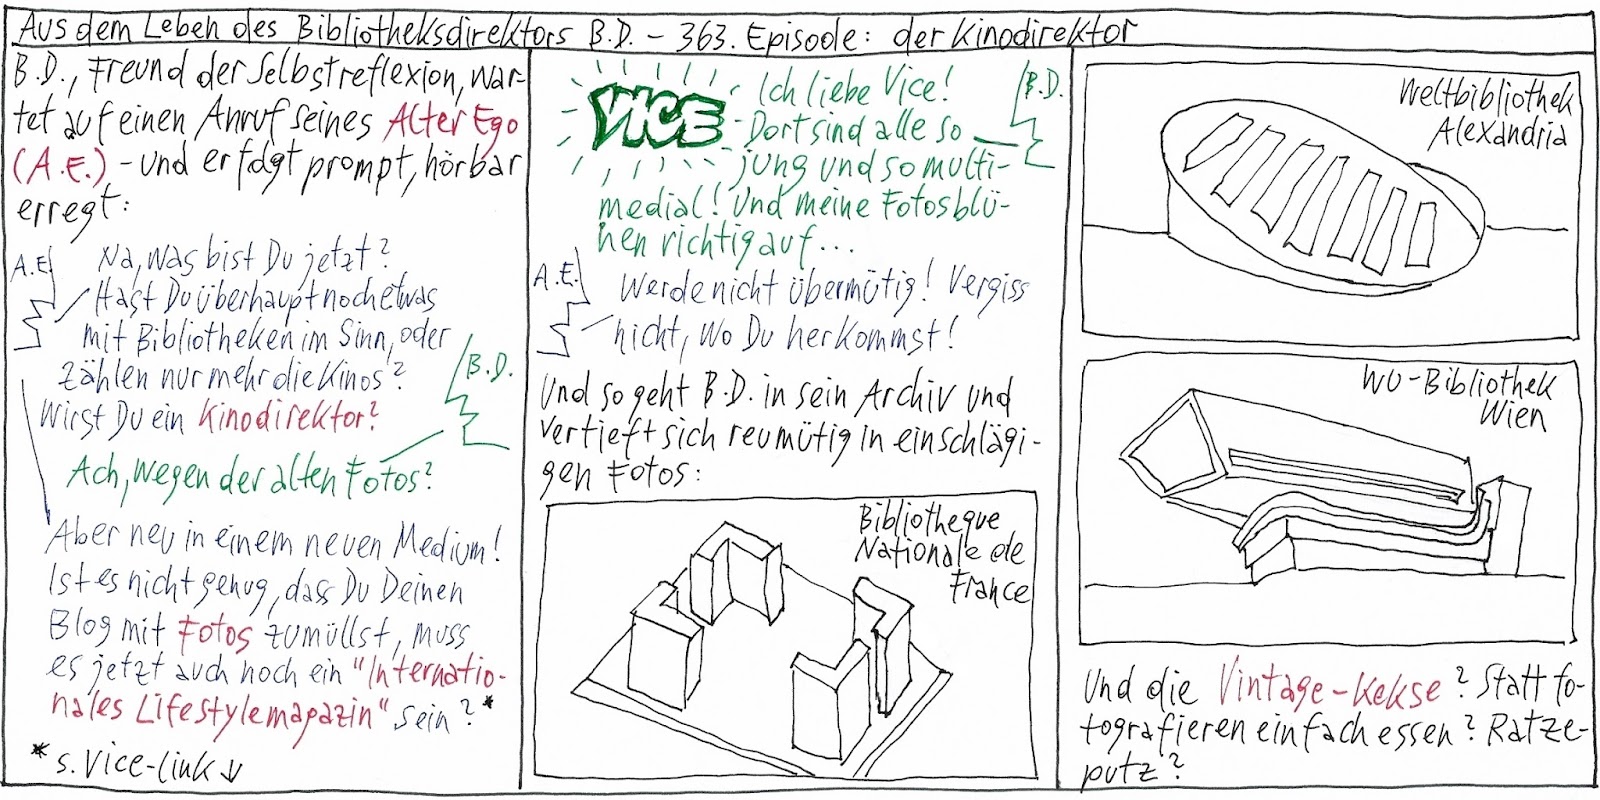 Aus dem Leben des Bibliotheksdirektors B.D. – 363. Episode: der Kinodirektor
B.D., Freund der Selbstreflexion, war-
tet auf einen Anruf seines Alter Ego
(A.E.) – und er folgt prompt, hörbar
erregt:
A.E.
Na, was bist Du jetzt?
Hast Du überhaupt noch etwas
mit Bibliotheken im Sinn, oder
zählen nur mehr die Kinos?
Wirst Du ein Kinodirektor?
B.D.
Ach, wegen der alten Fotos?
Aber neu in einem neuen Medium!
Ist es nicht genug, dass Du Deinen
Blog mit Fotos zumüllst, muss
es jetzt auch noch ein "Internatio-
nales Lifestylemagazin" sein?*
* s. Vice-link ↓
VICE
Ich liebe Vice!
B.D.
Dort sind alle so
jung und so multi-
medial! Und meine Fotos blü-
hen richtig auf...
A.E.
Werde nicht übermütig! Vergiss
nicht, wo Du herkommst!
Und so geht B.D. in sein Archiv und
vertieft sich reumütig in einschlägi-
gen Fotos:
Bibliotheque
Nationale de
France
Weltbibliothek
Alexandria
WU-Bibliothek
Wien
Und die Vintage-Kekse? Statt fo-
tografieren einfach essen? Ratze-
putz?